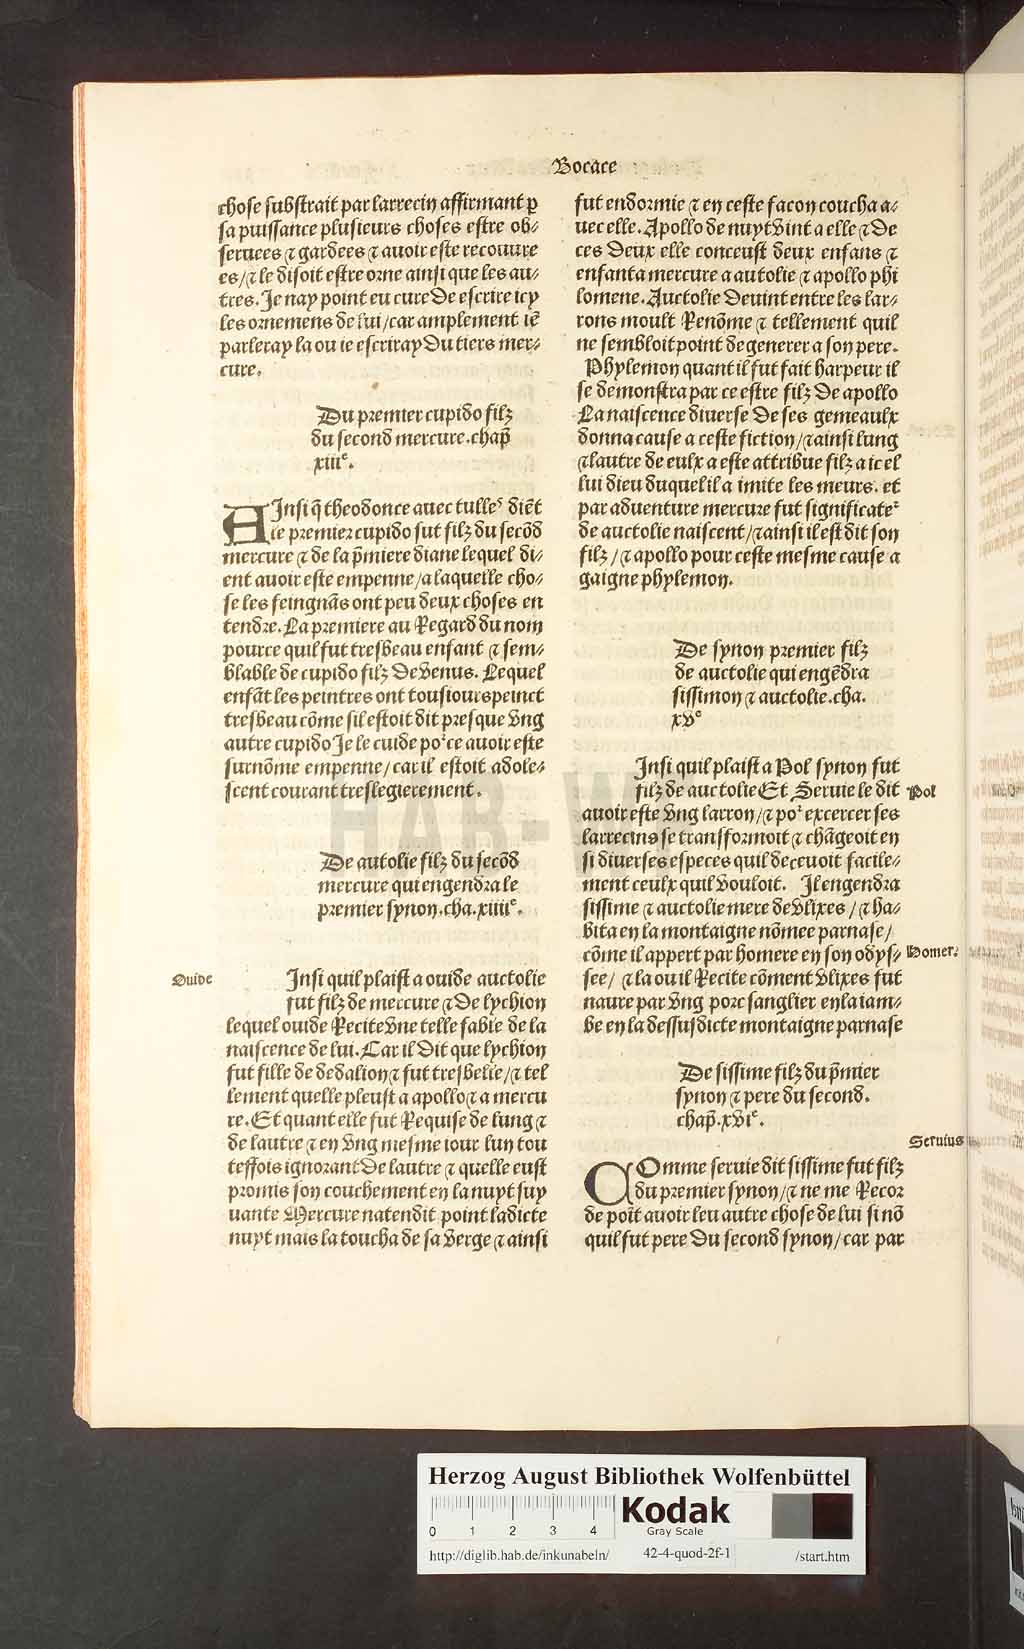 Bocace
chose substrait par larrecin affirmant ꝑ
sa puissance plusieurs choses estre ob⸗
seruees ⁊ gardees ⁊ auoir este recouure
es/⁊ le disoit estre orne ainsi que les au⸗
tres. Je nay point eu cure De escrire icy
les ornemens de lui/car amplement iē
parleray la ou ie escriray Du tiers mer⸗
cure.
Du premier cupido filz
du second mercure.chap̄
xiiiᵉ.
AInsi q̄ theodonce auec tulleˢ diēt
le premier cupido fut filz du secōd
mercure ⁊ de la p̄miere diane lequel di⸗
ent auoir este empenne/a laquelle cho⸗
se les feingnās ont peu deux choses en
tendre. La premiere au Regard du nom
pource quil fut tresbeau enfant ⁊ sem⸗
blable de cupido filz De venus. Lequel
enfāt les peintres ont tousiours peinct
tresbeau cōme sil estoit dit presque vng
autre cupido Je le cuide poʳce auoir este
surnōme empenne/car il estoit adole⸗
scent courant treslegierement.
De autolie filz du secōd
mercure qui engendra le
premier synon.cha.xiiiiᵉ.
Ouide
Insi quil plaist a ouide auctolie
fut filz de mercure ⁊ De lychion
lequel ouide Recite vne telle fable de la
naiscence de lui. Car il Dit que lychion
fut fille de dedalion ⁊ fut tresbelle/⁊ tel
lement quelle pleust a apollo ⁊ a mercu
re. Et quant elle fut Requise de lung ⁊
de lautre ⁊ en vng mesme iour lun tou
teffois ignorant De lautre ⁊ quelle eust
promis son couchement en la nuyt suy
uante Mercure natendit point ladicte
nuyt mais la toucha de sa verge ⁊ ainsi
fut endormie ⁊ en ceste facon coucha a⸗
uec elle. Apollo de nuyt vint a elle ⁊ De
ces Deux elle conceust deux enfans ⁊
enfanta mercure a autolie ⁊ apollo phi
lomene. Auctolie Deuint entre les lar⸗
rons moult Renōme ⁊ tellement quil
ne sembloit point degenerer a son pere.
Phylemon quant il fut fait harpeur il
se demonstra par ce estre filz De apollo
La naiscence diuerse De ses gemeaulx
donna cause a ceste fiction/⁊ ainsi lung
⁊ lautre de eulx a este attribue filz a icel
lui dieu duquel il a imite les meurs. et
par aduenture mercure fut significateʳ
de auctolie naiscent/⁊ ainsi il est dit son
filz/⁊ apollo pour ceste mesme cause a
gaigne phylemon.
De synon premier filz
de auctolie qui engēdra
sissimon ⁊ auctolie.cha.
xvᵉ
Insi quil plaist a Pol synon fut
filz de auctolie Et Seruie le dit
Pol
auoir este vng larron/⁊ poʳ excercer ses
larrecins se transformoit ⁊ chāgeoit en
si diuerses especes quil deceuoit facile⸗
ment ceulx quil vouloit. Il engendra
sissime ⁊ auctolie mere de vlixes/⁊ ha⸗
bita en la montaigne nōmee parnase/
cōme il appert par homere en son odys⸗
Homer.
see/ ⁊ la ou il Recite cōment vlixes fut
naure par vng porc sanglier en la iam⸗
be en la dessusdicte montaigne parnase
De sissime filz du p̄mier
synon ⁊ pere du second.
chap̄.xviᵉ.
Seruius
COmme seruie dit sissime fut filz
du premier synon/⁊ ne me Recor
de poīt auoir leu autre chose de lui si nō
quil fut pere Du second synon/car par
HAB-W
Herzog August Bibliothek Wolfenbüttel
0 1 2 3 4
Kodak
Gray Scale
http://diglib.hab.de/inkunabeln/ 42-4-quod-2f-1 /start.htm